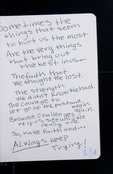 Sometimes the
things that seem
to hurt us the most
Are the very things
that bring out
the best in us...
The faith that
we thought we lost.
The strength
we didn't know we had.
The courage to
let go of the past and begin again.
Because challenges
may
So, have faith and...
Always keep
Trying!